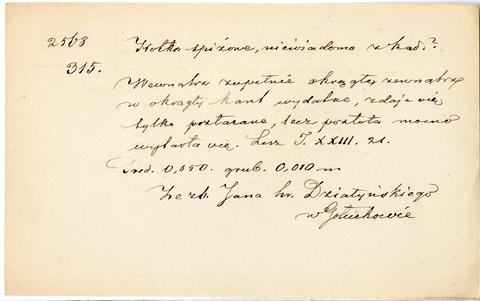 2568 Kółko spiżowe, niewiadomo zkąd.?
315.
Wewnątrz zupełnie okrągłe, zewnątrz
w okrągły kant wydalne, zdaje się
tylko poztacane, lecz pozłota mocno
wytarta się. Lesz T. XXIII. 21.
Śred. 0,050. grub. 0,010 m
Ze zb. Jana hr. Działyńskiego
w Gołuchowie